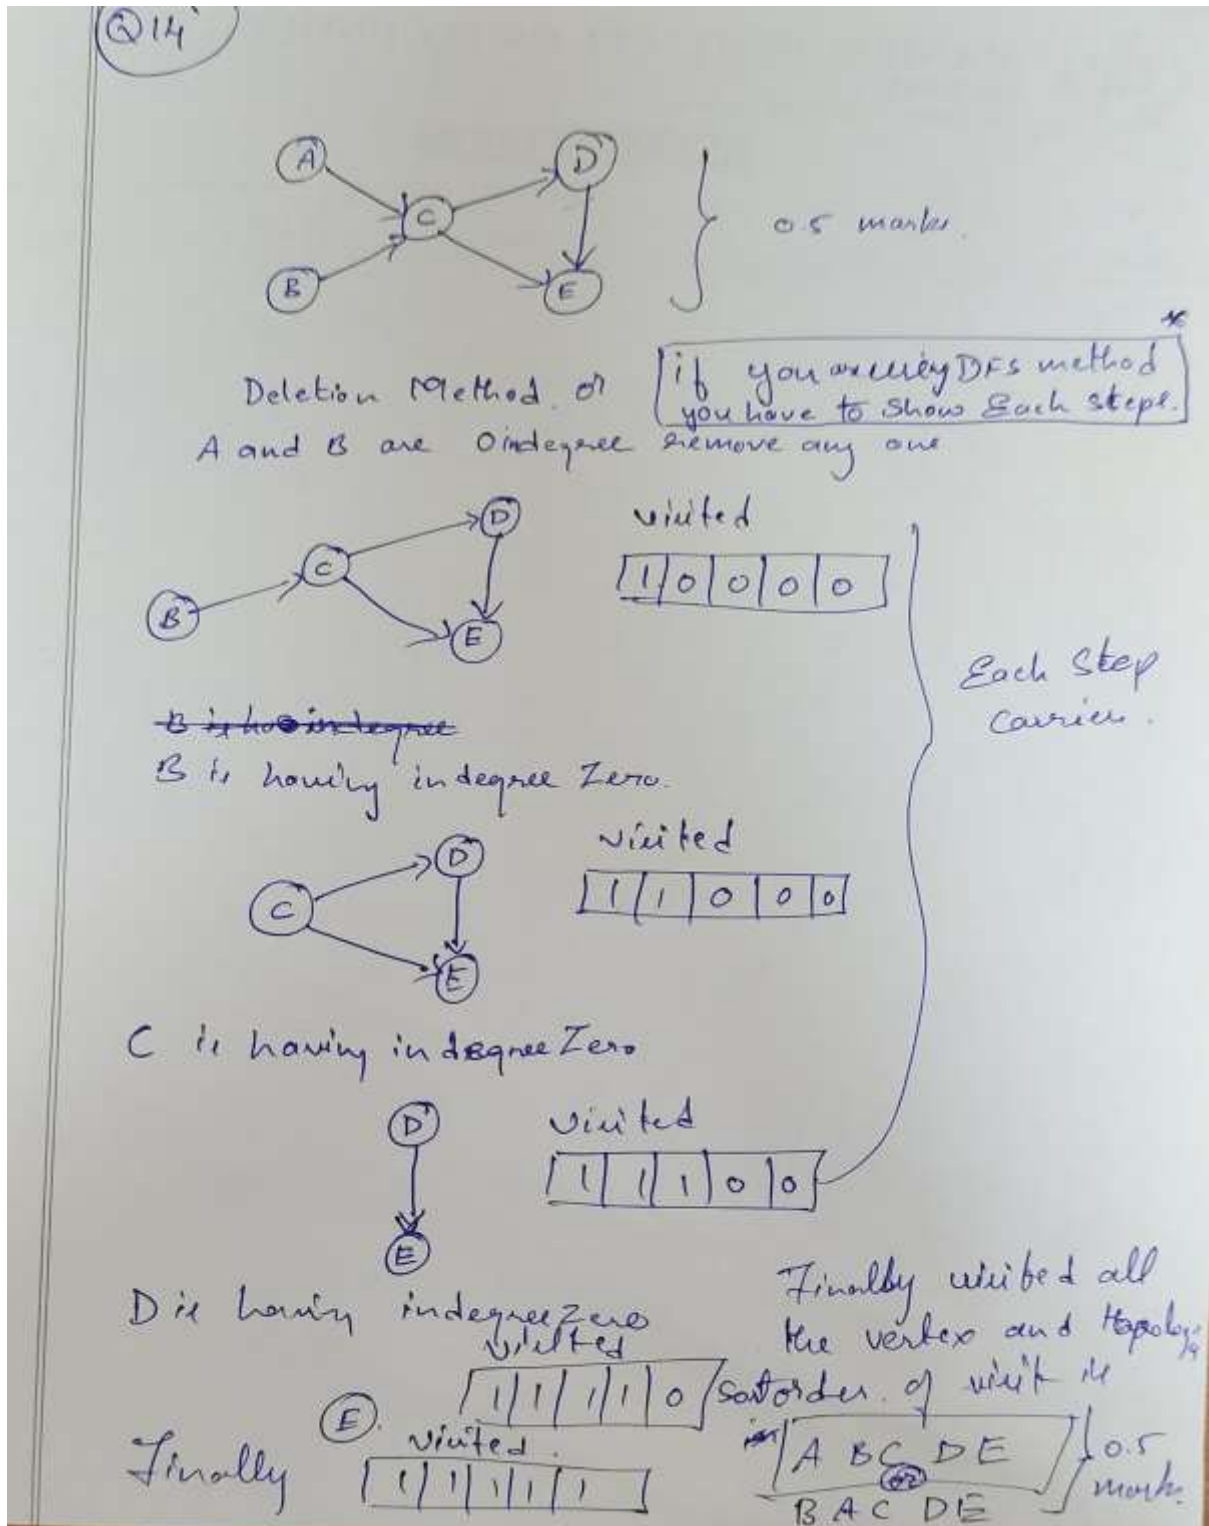 Q14
A
D
C
B
E
0.5 marks.
Deletion Method. or
if you are using DFS method
you have to show Each steps.
A and B are 0 indegree remove any one
B
C
D
E
visited
1 0 0 0 0
Each Step
carries.
B is having indegree Zero.
C
D
E
visited
1 1 0 0 0
C is having indegree Zero
D
E
visited
1 1 1 0 0
D is having indegree zero
visited
1 1 1 1 0
E
Finally
visited.
1 1 1 1 1
Finally visited all
the vertex and
sort order of visit is
A B C D E
or
B A C D E
0.5
marks.